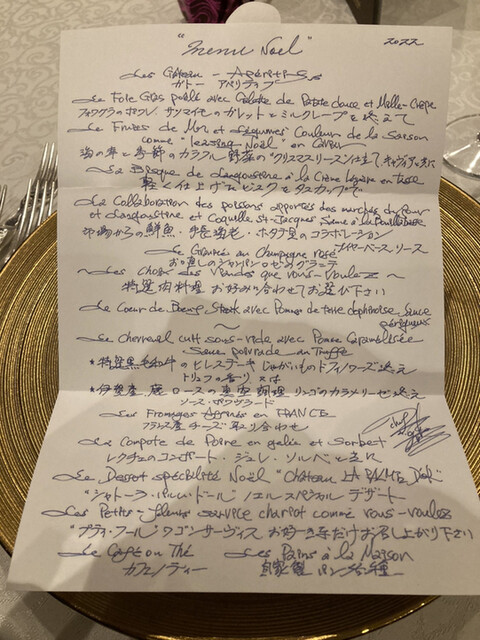 "Menu Noël" 2022
Les Gâteau - Apéritifs
ガトー アペリティフ
Le Foie Gras poêlé avec Galette de Patate douce et Mille-Crêpe
フォワグラのポワレ サツマイモのガレットとミルクレープを添えて
Le Fruits de Mer et Légumes Couleur de la Saison
comme "Noël" en Caviar
海の幸と季節のカラフル野菜の"クリスマスリース"仕立て キャヴィアと共に
La Bisque de Langoustine à la Crème légère en tasse
軽く仕上げたビスクをタスカップで
La Collaboration des poissons apportés des marchés du jour
et Langoustine et Coquille St-Jacques Sauce à la Bouillabaisse
市場からの鮮魚・手長海老・ホタテ貝のコラボレーション
ブイヤベースソース
Le Granité au Champagne rosé
お口直しのシャンパンロゼのグラニテ
~ Les Choix des Viandes que vous-voulez ~
特選肉料理 お好み合わせてお選び下さい
Le Coeur de Boeuf Steak avec Pomme de terre dauphinoise Sauce
périgueux
~
Le Chevreuil cuit sous-vide avec Pomme Caramélisée
Sauce poivrade au Truffe
*特選黒毛和牛のヒレステーキ じゃがいものドフィノワーズ添え
トリュフの香り 又は
*伊勢産 鹿 ロースの真空調理 リンゴのカラメリーゼ添え
ソース・ポワヴラード
Les Fromages Affinés en FRANCE
フランス産チーズ取り合わせ
La Compote de Poire en gelée et Sorbet
レクチェのコンポート・ジュレ・ソルベと共に
Le Dessert spécialité Noël "Château LA PALME D'OR"
"シャトーラ・パルム・ドール" ノエルスペシャル デザート
Les Petits-fours service chariot comme vous-voulez
"プティ・フール"ワゴンサーヴィス お好きなだけお召し上がり下さい
Le Café ou Thé Les Pains à la Maison
カフェ ティー 自家製パン 種